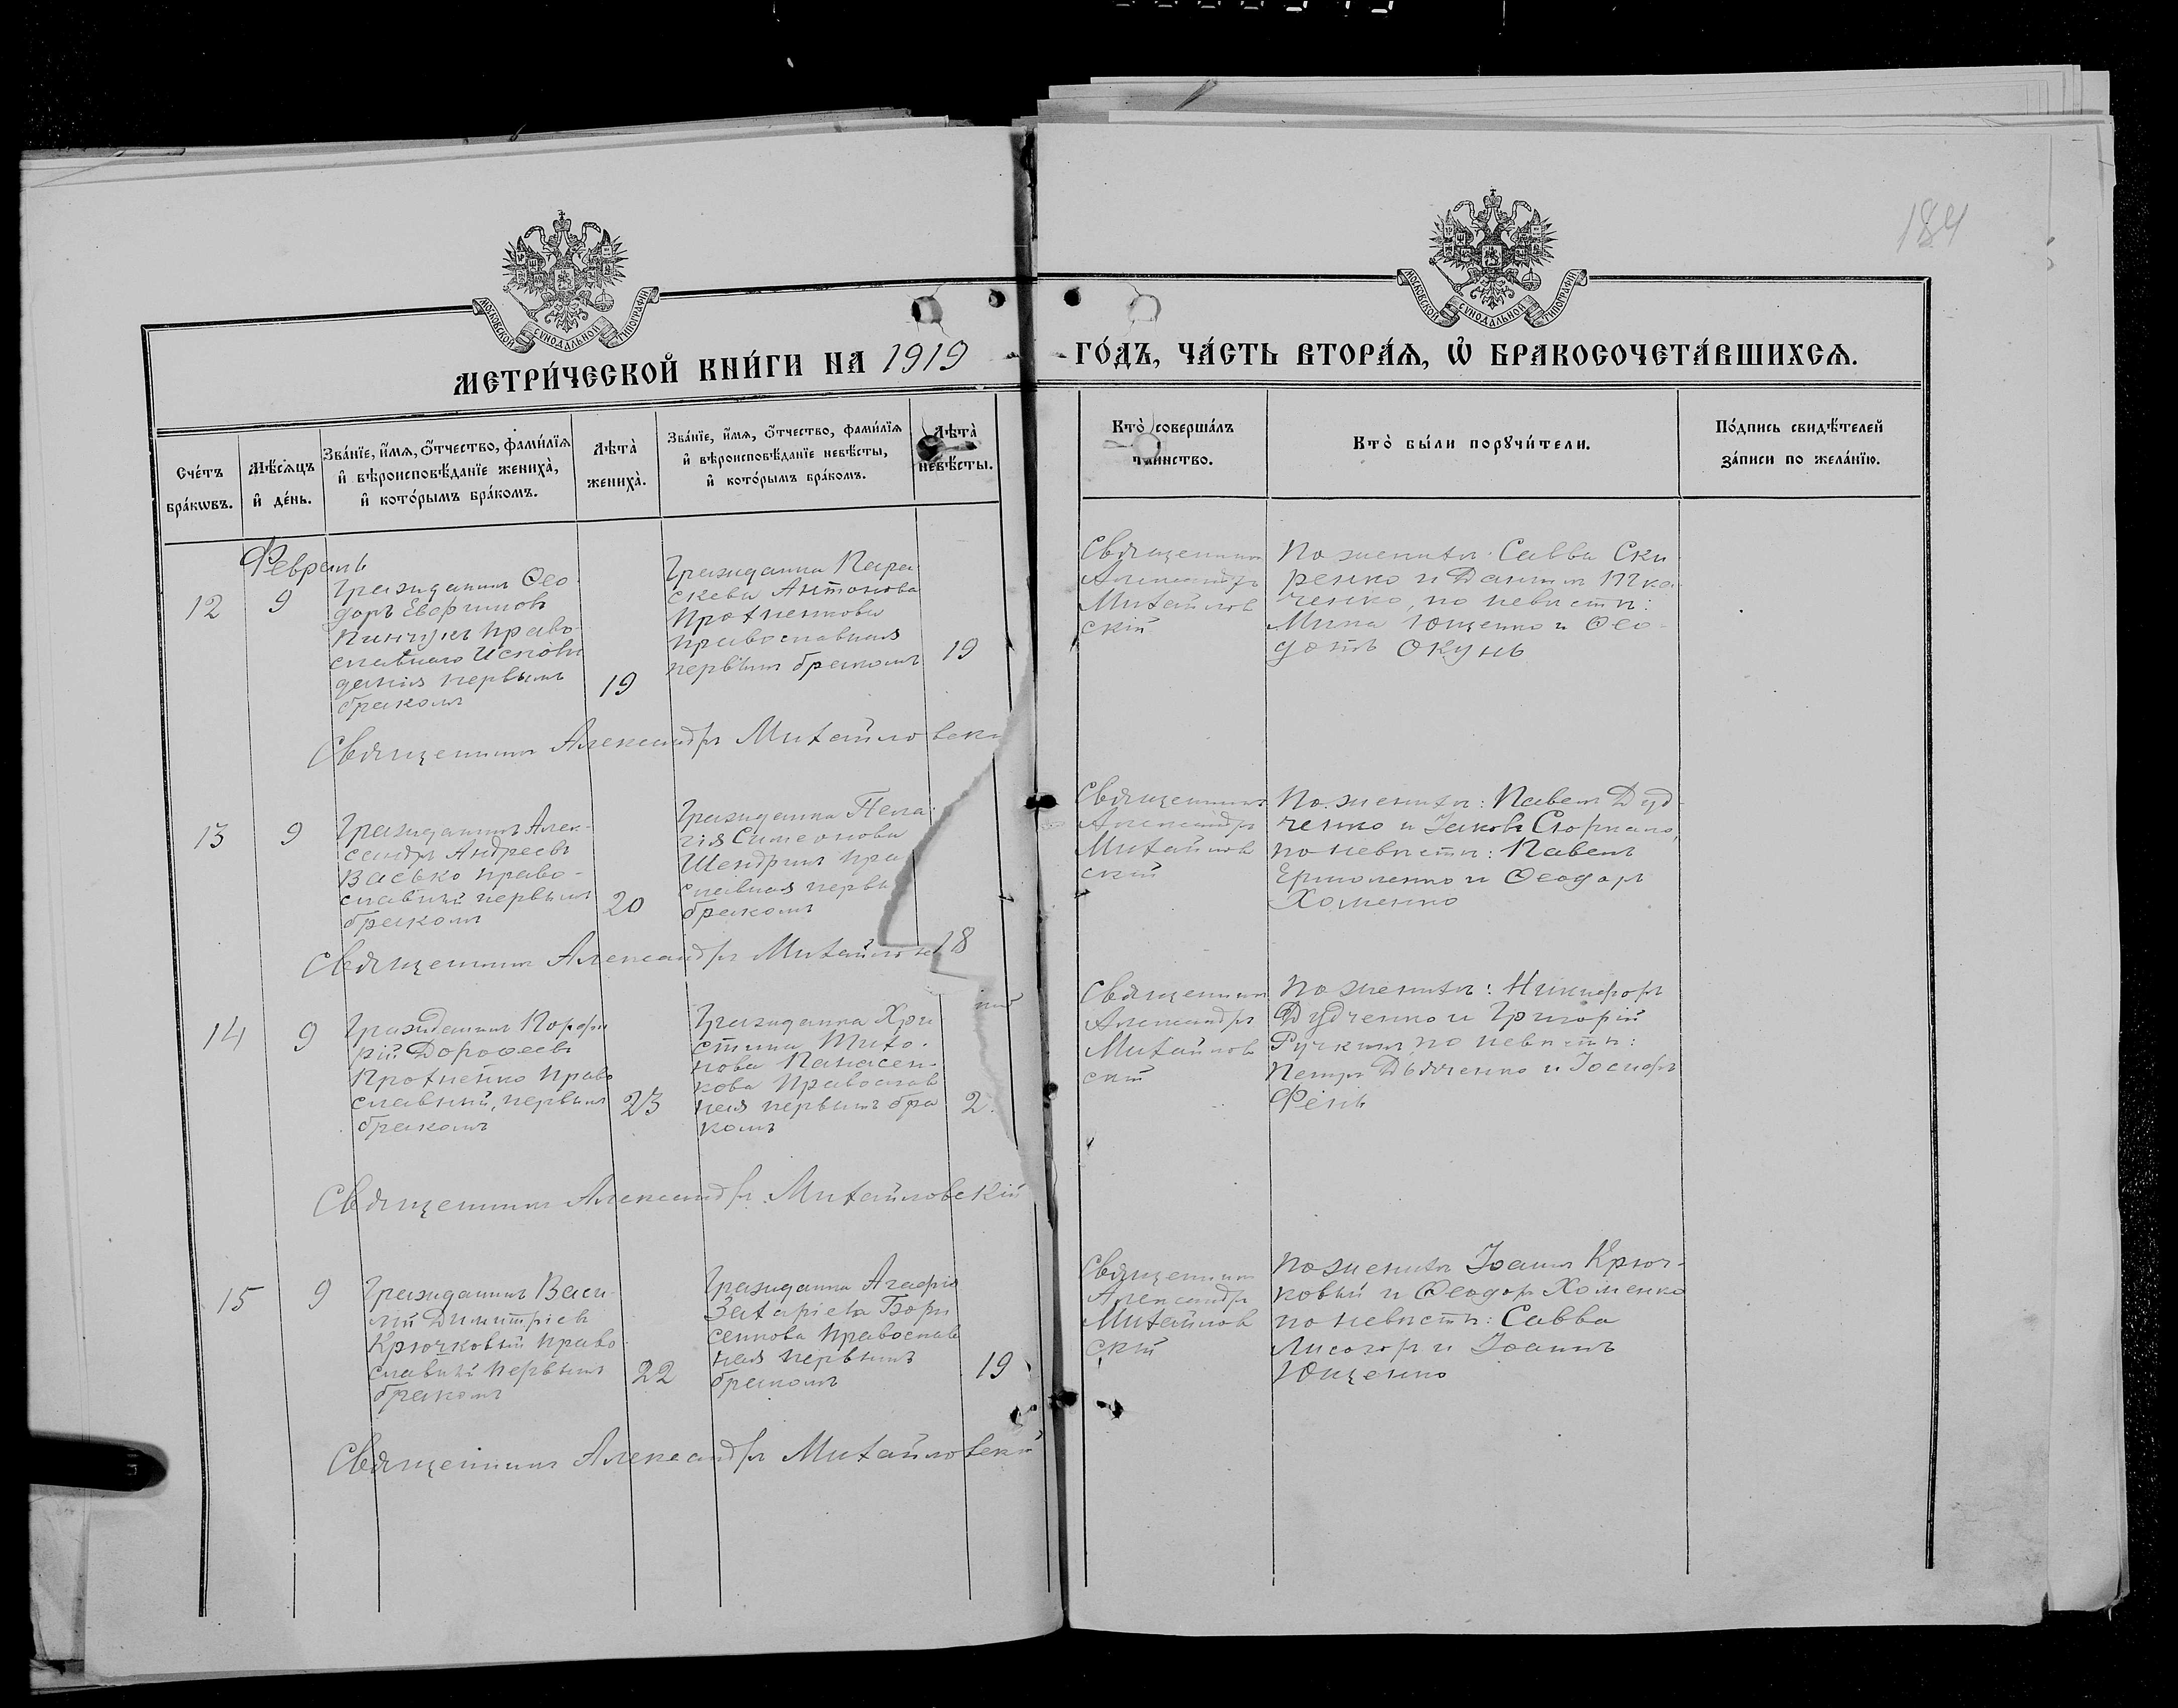 184
МОСКОВСКОЙ СѴНОДАЛЬНОЙ ТИПОГРАФІИ
МОСКОВСКОЙ СѴНОДАЛЬНОЙ ТИПОГРАФІИ
МЕТРИ́ЧЕСКОЙ КНИ́ГИ НА 1919 ГО́ДЪ, ЧА́СТЬ ВТОРА́Ѧ, Ѡ҆ БРАКОСОЧЕТА́ВШИХСѦ.
Сче́тъ
бра́кѡвъ.
Мѣ́сѧцъ
и҆ де́нь.
Зва́нїе, и҆́мѧ, ѻ҆́тчество, фами́лїѧ
и҆ вѣроисповѣ́данїе жениха̀,
и҆ кото́рымъ бра́комъ.
Лѣ́та̀
жениха̀.
Зва́нїе, и҆́мѧ, ѻ҆́тчество, фами́лїѧ
и҆ вѣроисповѣ́данїе невѣ́сты,
и҆ кото́рымъ бра́комъ.
Лѣ́та̀
невѣ́сты.
Кто̀ соверша́лъ
таинство.
Кто̀ бы́ли порꙋчи́тели.
По́дпись свидѣ́телей
за́писи по жела́нїю.
Февраль
12
9
Гражданинъ Ѳео-
доръ Евфимовъ
право-
славнаго Исповѣ
данія первымъ
бракомъ
19
Гражданка Пара
скева Антонова
Протченкова
православная
первымъ бракомъ
19
Священникъ
Александръ
Михайлов
скій
По женихѣ: Савва Ски
ренко и Даніилъ Тка-
ченко, по невѣстѣ:
Мина Ющенко и Ѳео-
дотъ Окунь
Священникъ Александръ Михайловскі
13
9
Гражданинъ Алек-
сандръ Андреевъ
Васько право-
славный первымъ
бракомъ
20
Гражданка Пела-
гія Симеонова
пра
славная первы
бракомъ
18
Священникъ
Александръ
Михайлов
скій
По женихѣ: Павелъ Дуд-
ченко и Іаковъ
по невѣстѣ: Павелъ
Ермоленко и Ѳеодоръ
Хоменко
Священникъ Александръ Михайлов
кій
14
9
Гражданинъ Порфи
рій Дороѳеевъ
Протченко право
славный, первымъ
бракомъ
23
Гражданка Хри
стина Тихо-
нова Панасен-
кова Православ
ная первымъ бра
комъ
2
Священникъ
Александръ
Михайлов
скій
По женихѣ: Никифоръ
Дудченко и Григорій
по невѣстѣ:
Петръ Дьяченко и Іосифъ
Фень
Священникъ Александръ Михайловскій
15
9
Гражданинъ Васи-
лій Димитріевъ
Крючковый право
славный первымъ
бракомъ
22
Гражданка Агафія
Захаріева Бори
сенкова Православ
ная первымъ
бракомъ
19
Священникъ
Александръ
Михайлов
скій
По женихѣ Іоаннъ Крюч-
ковый и Ѳеодоръ Хоменко
по невѣстѣ: Савва
Лисогоръ и Іоаннъ
Ющенко
Священникъ Александръ Михайловскій